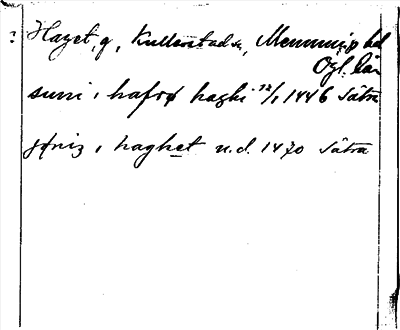 ? Haget, g, Kullerstad sn, Memmings hd
Ögl. län
suni i hafrø haghi 12/1 1446 Sätra
jøniz i haghet u.d. 1470 Sätra